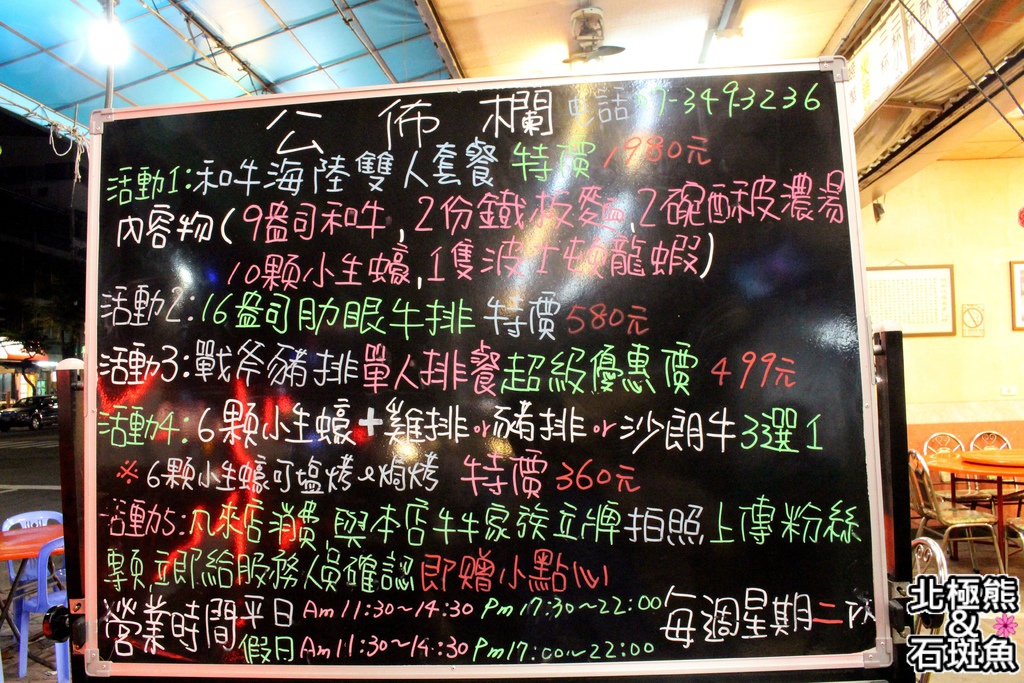 公佈欄 電話 07-3493236
活動1:和牛海陸雙人套餐 特價1980元
內容物(9盎司和牛,2份鐵板麵,2碗酥皮濃湯
10顆小生蠔,1隻波士頓龍蝦)
活動2:16盎司肋眼牛排 特價580元
活動3:戰斧豬排單人排餐超級優惠價 499元
活動4:6顆小生蠔+雞排or豬排or沙朗牛3選1
※6顆小生蠔可塩烤&焗烤 特價360元
活動5:凡來店消費與本店牛牛家族立牌拍照上傳粉絲
專頁立即給服務員確認即贈小點心
營業時間 平日Am11:30~14:30 Pm17:30~22:00 每週星期二
假日Am11:30~14:30 Pm17:00~22:00
北極熊
&
石斑魚